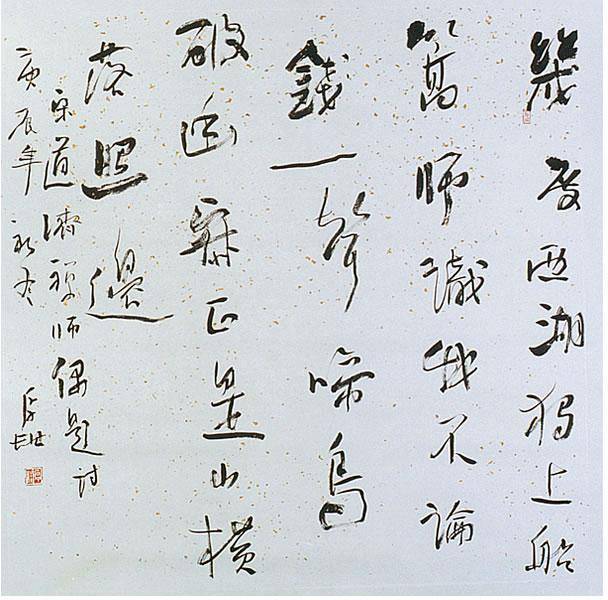 幾度西湖獨上船
篙師識我不論
錢一聲啼鳥
破幽寂正是山橫
落照邊
宋道濟禪師偶題詩
庚辰年初冬